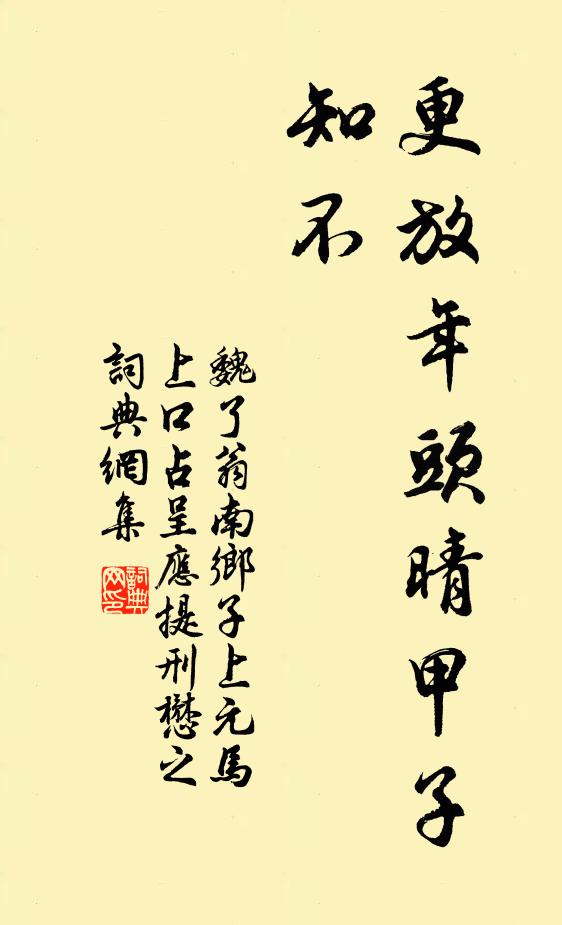 更放年頭晴甲子
知不
魏了翁南鄉子上元馬
上口占呈應提刑懋之
詞典網集
詞典
网印